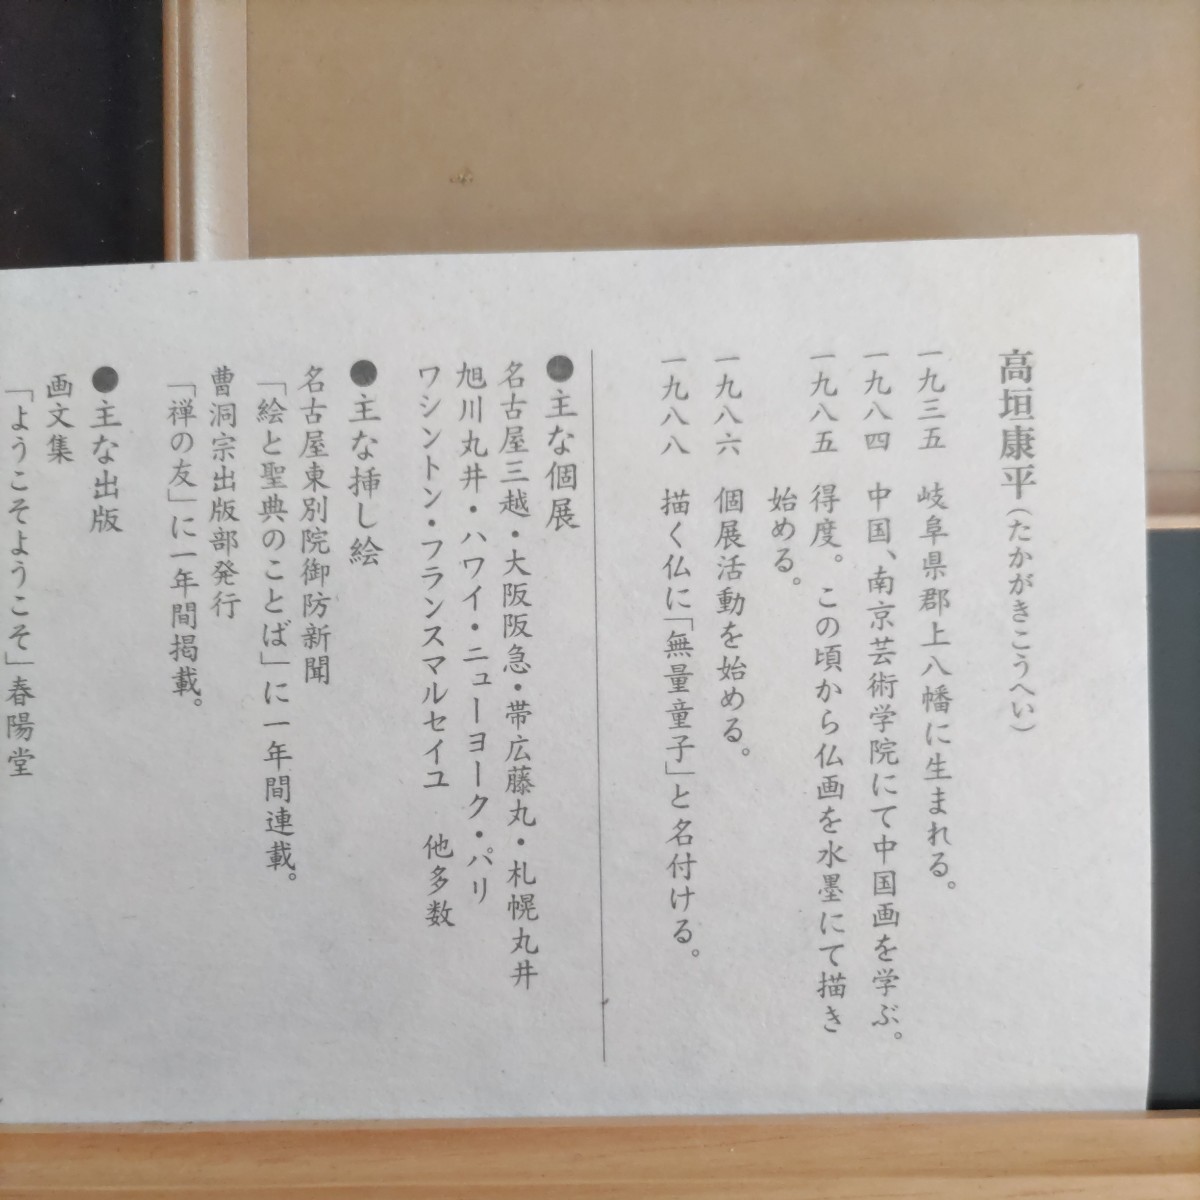 高垣康平(たかがきこうへい)
一九三五 岐阜県郡上八幡に生まれる。
一九八四 中国、南京芸術学院にて中国画を学ぶ。
一九八五 得度。この頃から仏画を水墨にて描き
始める。
一九八六 個展活動を始める。
一九八八 描く仏に「無量童子」と名付ける。
●主な個展
名古屋三越・大阪阪急・帯広藤丸・札幌丸井
旭川丸井・ハワイ・ニューヨーク・パリ
ワシントン・フランスマルセイユ 他多数
●主な挿し絵
名古屋東別院御防新聞
「絵と聖典のことば」に一年間連載。
曹洞宗出版部発行
「禅の友」に一年間掲載。
●主な出版
画文集
「ようこそようこそ」春陽堂